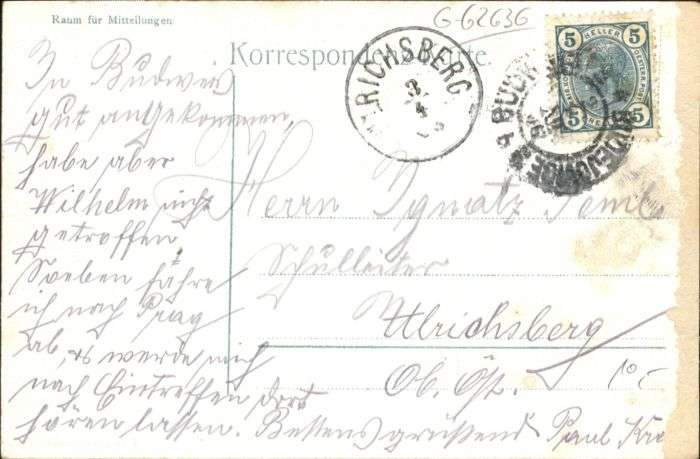 Raum für Mitteilungen
G-62636
Korrespondenz-Karte.
ULRICHSBERG
5 HELLER 5
5 5
BUDWEIS
BUDĚJOVICE
In Budweis
gut angekommen,
habe aber
Wilhelm nicht
getroffen.
Soeben fahre
ich nach Prag
ab, werde mich
nach Eintreffen dort
hören lassen. Bestens grüßend Paul
Herrn Ignatz
Schulleiter
Ulrichsberg
Ob. Öst.
10.-